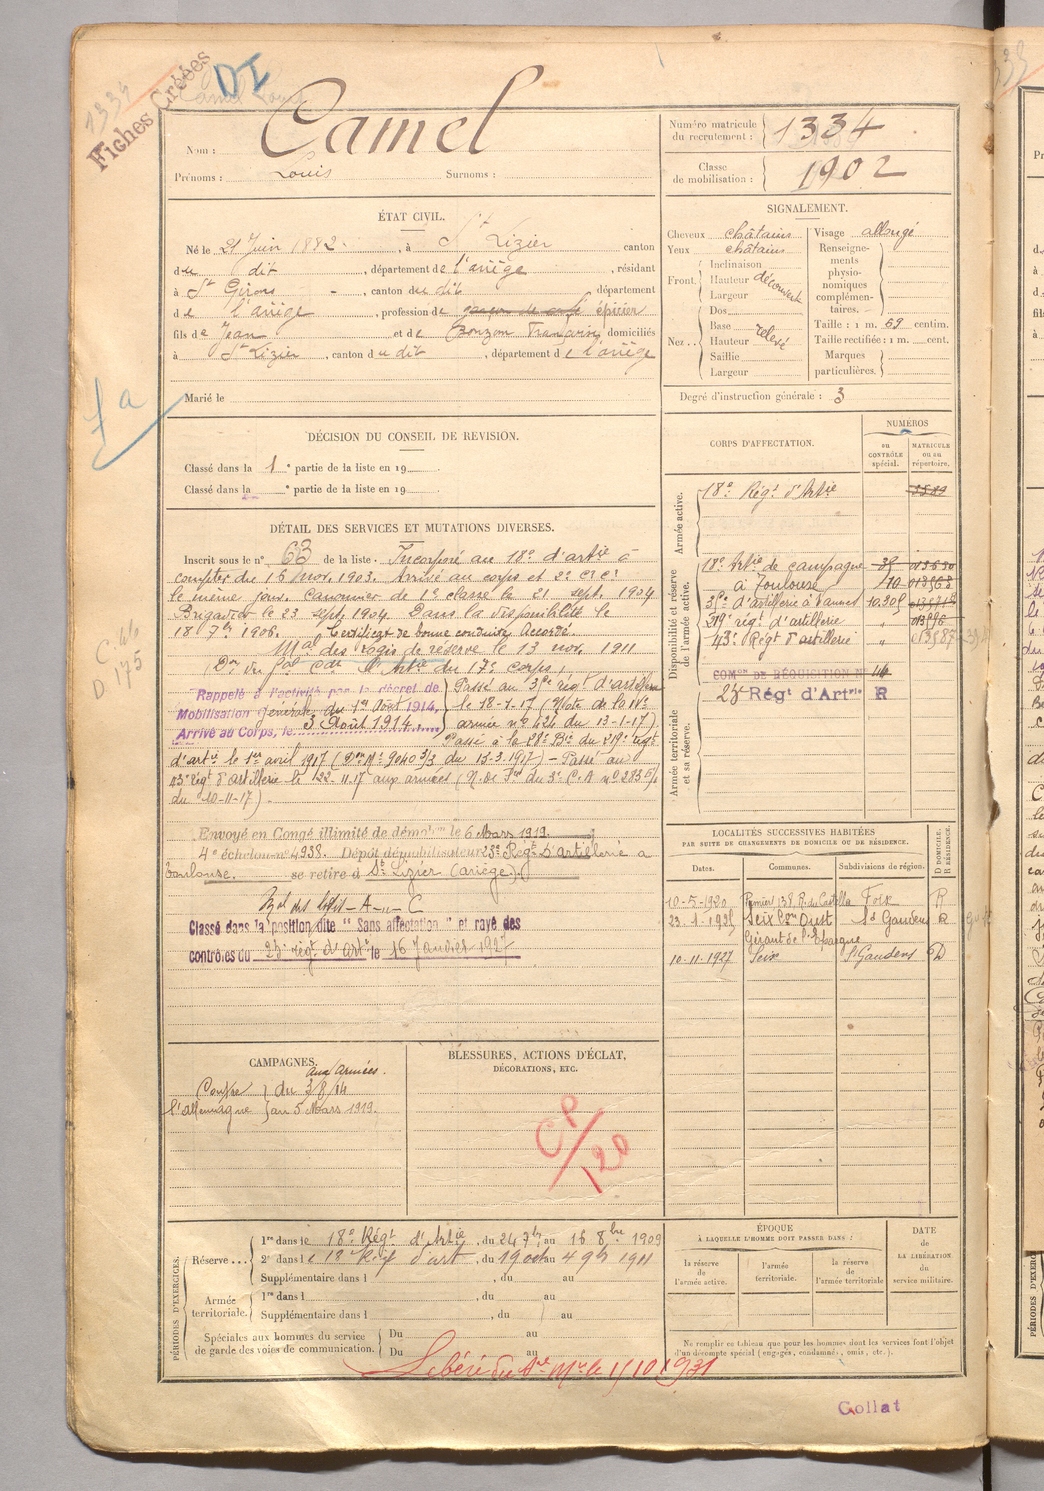 1334
Fiches Créées
DI
Camel Louis
Nom : Camel
Prénoms : Louis Surnoms :
Numéro matricule du recrutement : 1334
Classe de mobilisation : 1902
ÉTAT CIVIL.
Né le 21 Juin 1882, à St Lizier canton
du dit, département de l'ariège, résidant
à St Girons, canton du dit département
de l'ariège, profession de garçon de café épicier
fils de Jean et de Françoise domiciliés
à St Lizier, canton du dit, département de l'ariège
Marié le
SIGNALEMENT.
Cheveux châtains
Yeux châtains
Front. Inclinaison
Hauteur découvert
Largeur
Nez.. Dos
Base
Hauteur relevé
Saillie
Largeur
Visage allongé
Renseignements physionomiques complémentaires.
Taille : 1 m. 69 centim.
Taille rectifiée : 1 m. cent.
Marques particulières.
Degré d'instruction générale : 3
DÉCISION DU CONSEIL DE REVISION.
Classé dans la 1 e partie de la liste en 19
Classé dans la e partie de la liste en 19
DÉTAIL DES SERVICES ET MUTATIONS DIVERSES.
Inscrit sous le n° 63 de la liste. Incorporé au 18e d'artie à
compter du 16 nov. 1903. Arrivé au corps et 2e cr ct
le même jour. Canonnier de 1e classe le 21 sept. 1904
Brigadier le 23 sept. 1904. Dans la disponibilité le
18 7bre 1906. Certificat de bonne conduite Accordé.
Mal des logis de réserve le 13 nov. 1911
(Don du Gal Cdt l'Artie du 17e corps)
Rappelé à l'activité par le décret de
Mobilisation générale du 1er Août 1914,
Arrivé au Corps, le 3 Août 1914
Passé au 35e régt d'artillerie
le 18-1-17 (Note de la IVe
armée n° 424 du 13-1-17)
Passé à la 28e Bie du 219e régt
d'artie le 1er avril 1917 (Don Me 9040 3/3 du 15-3-1917) - Passé au
43e régt d'artillerie le 22.11.17 aux armées
du 10-11-17).
Envoyé en Congé illimité de démobon le 6 Mars 1919
4e échelon n° 4938. Dépôt démobilisateur 23e Régt d'Artillerie à
Toulouse. se retire à St Lizier (Ariège).
Classé dans la position dite "Sans affectation" et rayé des
contrôles du 23e régt d'artie le 16 Janvier 1927
CORPS D'AFFECTATION.
NUMÉROS
au CONTRÔLE spécial.
MATRICULE ou au répertoire.
Armée active.
18e Régt d'Artie
Disponibilité et réserve de l'armée active.
18e Artie de campagne
à Toulouse
35e d'artillerie à Vannes
219e régt d'artillerie
43e Régt d'artillerie
Armée territoriale et sa réserve.
COMon DE RÉQUISITION N° 44
23e Régt d'Artrie R
LOCALITÉS SUCCESSIVES HABITÉES
PAR SUITE DE CHANGEMENTS DE DOMICILE OU DE RÉSIDENCE.
Dates. Communes. Subdivisions de région. D DOMICILE. R RÉSIDENCE.
10-5-1920 Pamier 138 R. du Castella Foix R
Seix St Gaudens R
Gérant de l'Epargne
10-11-1927 Seix St Gaudens D
CAMPAGNES.
aux armées.
Contre l'allemagne du 3/8/14
au 5 Mars 1919.
BLESSURES, ACTIONS D'ÉCLAT,
DÉCORATIONS, ETC.
CP/120
PÉRIODES D'EXERCICES.
Réserve... 1re dans le 18e Régt d'Artie, du 24 7bre au 16 8bre 1909
2e dans le 18e Régt d'art, du 19 oct au 4 9bre 1911
Supplémentaire dans l , du au
Armée territoriale. 1re dans l , du au
Supplémentaire dans l , du au
Spéciales aux hommes du service de garde des voies de communication. Du au
Du au
Libéré du Sce Mre le 15/10/1931
ÉPOQUE
À LAQUELLE L'HOMME DOIT PASSER DANS :
la réserve de l'armée active.
l'armée territoriale.
la réserve de l'armée territoriale
DATE de LA LIBÉRATION du service militaire.
Ne remplir ce tableau que pour les hommes dont les services font l'objet
d'un décompte spécial (engagés, condamnés, omis, etc.).
Collat